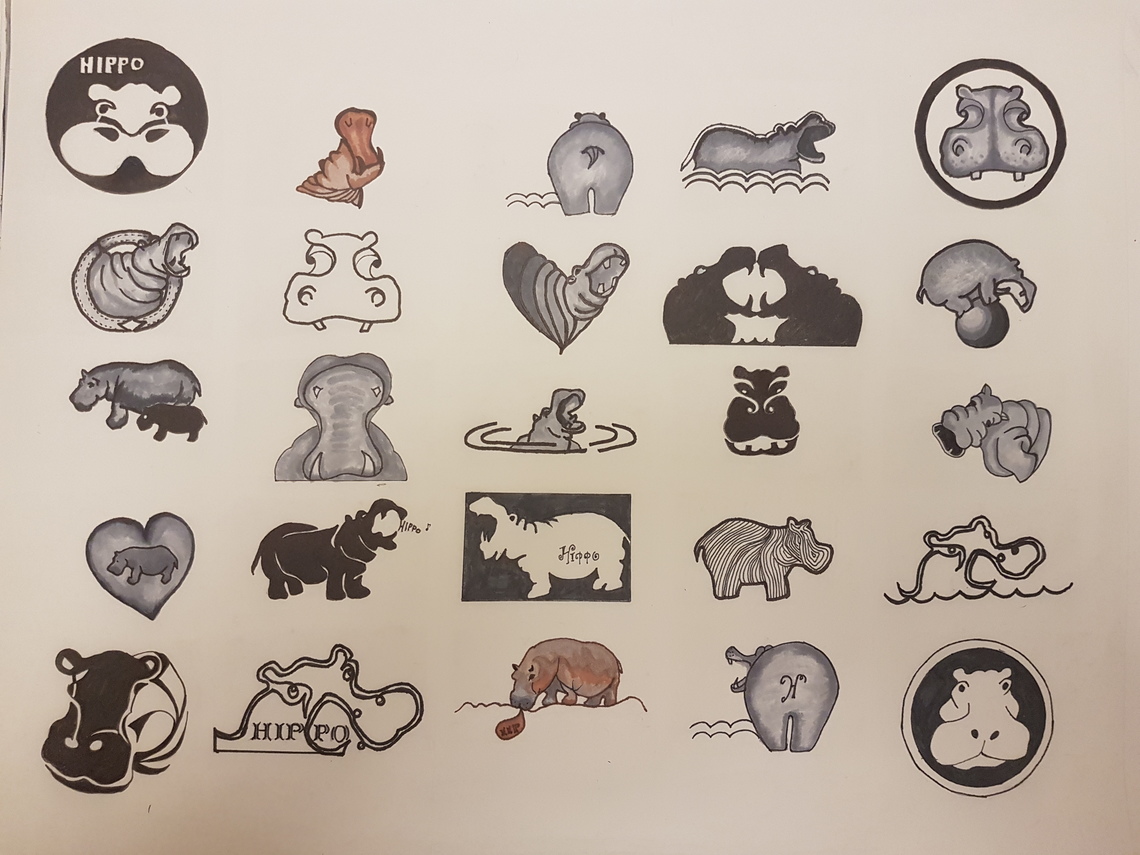 HIPPO
HIPPO
Hippo
HIPPO
H